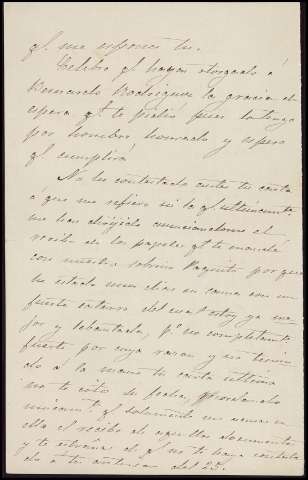 ql. me espreses tu.
Celebro ql. hayas otorgado á
Bernardo Rodriguez la gracia de
espera ql. te pidió pues lo tengo
por hombre honrado y espero
ql. cumplirá
No he contestado antes tu carta
á que me refiero ni la ql. ultimamte.
me has dirigido anunciandome el
recibo de los papeles ql. te mandé
con nuestro sobrino Paquito porque
he estado unos dias en cama con un
fuerte catarro del cual estoy ya me-
jor y lebantado, po. no completamte.
fuerte por cuya razon y no tenien
do á la mano tu carta última
no te cito su fecha, pero la do
unicamte. ql. solamente me anuncias
ella el recibo de aquellos documentos
y te estrañas de ql. no te haya contesta
do á tu anterior del 25.